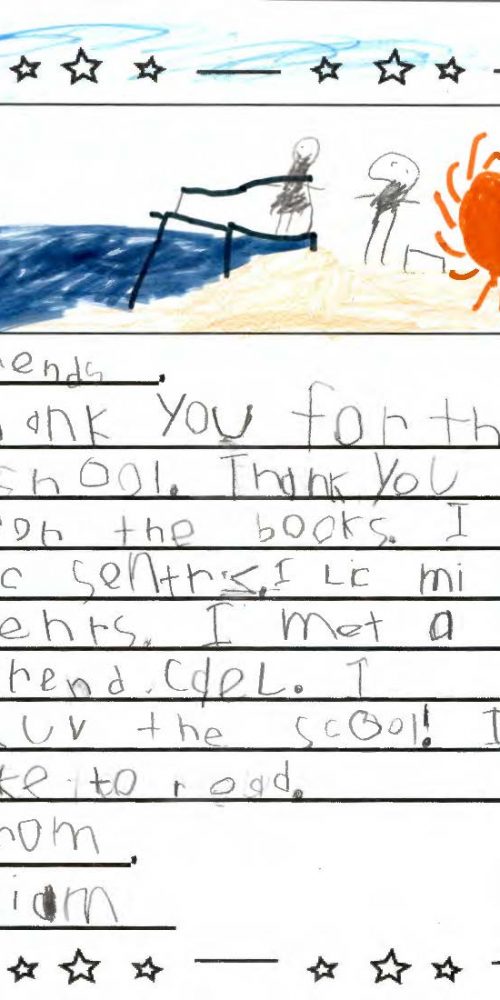 ends,
ank you for th
shool. Thank you
or the books. I
c sentrs. I Lic mi
I met a
rend. Cael. I
uv the scool! I
ke to read.
rom,
iam